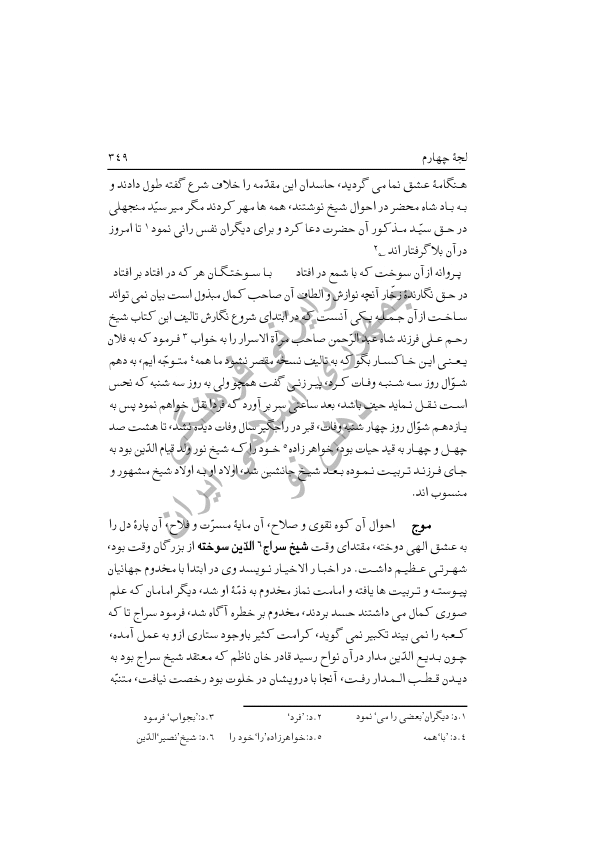 لجهٔ چهارم ۳۴۹
هـنگامهٔ عـشق نما می گردید، حاسدان این مقدّمه را خلاف شرع گفته طول دادند و
بـه بـاد شاه محضر در احوال شیخ نوشتند، همه ها مهر کردند مگر میر سیّد منجهلی
در حـق سیّـد مـذکور آن حضرت دعا کرد و برای دیگران نفس رانی نمود۱ تا امروز
در آن بلا گرفتار اند ـ۲
پـروانه از آن سوخت که با شمع در افتاد بـا سـوختـگـان هر که در افتاد بر افتاد
در حـق نگارندهٔ زخّار آنچه نوازش و الطاف آن صاحب کمال مبذول است بیان نمی تواند
ساخـت از آن جـمـلـه یـکی آنست که در ابتدای شروع نگارش تالیف این کتاب شیخ
رحـم عـلی فرزند شاه عبد الرّحمن صاحب مرآة الاسرار را به خواب۳ فـرمود که به فلان
یـعـنی ایـن خـاکسـار بگو که به تالیف نسخه مقصر نشود ما همه۴ متـوجّه ایم، به دهم
شـوّال روز سـه شـنبـه وفـات کـرد، پیـر زنـی گفت همچو ولی به روز سه شنبه که نحس
اسـت نـقـل نـمایـد حیف باشد، بعد ساعتی سر بر آورد که فردا نقل خواهم نمود پس به
یـازدهـم شوّال روز چهار شنبه وفات، قبر در راجگیر سال وفات دیده نشد، تا هشت صد
چهـل و چهـار به قید حیات بود، خواهر زاده۵ خـود را کـه شیخ نور ولد قیام الدّین بود به
جـای فـرزنـد تـربیـت نـمـوده بـعـد شیـخ جانشین شد، اولاد او بـه اولاد شیخ مشهور و
منسوب اند.
موج احوال آن کوه تقوی و صلاح، آن مایهٔ مسرّت و فلاح، آن پارهٔ دل را
به عشق الهی دوخته، مقتدای وقت شیخ سراج۶ الدّین سوخته از بزرگان وقت بود،
شهـرتـی عـظیـم داشـت. در اخبـار الاخیـار نـویسد وی در ابتدا با مخدوم جهانیان
پیـوستـه و تـربیت ها یافته و امامت نماز مخدوم به ذمّهٔ او شد، دیگر امامان که علم
صوری کمال می داشتند حسد بردند، مخدوم بر خطره آگاه شد، فرمود سراج تا که
کـعبه را نمی بیند تکبیر نمی گوید، کرامت کثیر باوجود ستاری ازو به عمـل آمده،
چـون بـدیـع الدّین مدار در آن نواح رسید قادر خان ناظم که معتقد شیخ سراج بود به
دیـدن قـطـب الـمـدار رفـت، آنجا با درویشان در خلوت بود رخصت نیافت، متنبّه
۱.د: دیگران'بعضی را می' نمود ۲.د: 'فرد' ۳.د:'بجواب' فرمود
۴.د: 'با'همه ۵.د:خواهرزاده'را' خود را ۶.د: شیخ'نصیر'الدّین